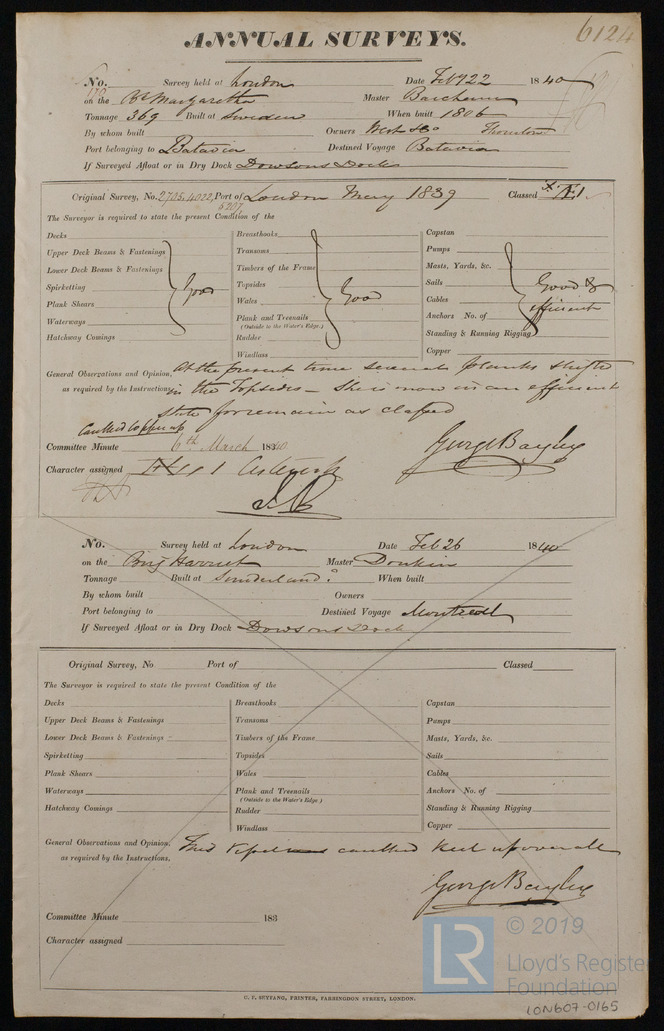 6124
ANNUAL SURVEYS.
No. 170 Survey held at London Date Feb 22 1840
on the Bk Margaretha Master Barchum
Tonnage 369 Built at Sweden When built 1806
By whom built Owners West & Co
Port belonging to Batavia Destined Voyage Batavia
If Surveyed Afloat or in Dry Dock Dowsons Dock
Original Survey, No. 2705. 4022, Port of London May 1839 Classed Æ 1
5207
The Surveyor is required to state the present Condition of the
Decks Breasthooks Capstan
Upper Deck Beams & Fastenings Transoms Pumps
Lower Deck Beams & Fastenings Timbers of the Frame Masts, Yards, &c.
Spirketting Good Topsides Good Sails Good &
Plank Shears Wales Cables efficient
Waterways Plank and Treenails Anchors No. of
(Outside to the Water's Edge.)
Hatchway Comings Rudder Standing & Running Rigging
Windlass Copper
General Observations and Opinion, At the present time several planks shifted
as required by the Instructions, in the Topsides – She is now in an efficient
state to remain as classed
Caulked to
Committee Minute 6th March 1840 George Bayley
Character assigned 1 Asterisk
No. Survey held at London Date Feb 26 1840
on the Brig Harriet Master Donkin
Tonnage Built at Sunderland? When built
By whom built Owners
Port belonging to Destined Voyage Montreal
If Surveyed Afloat or in Dry Dock Dowsons Dock
Original Survey, No Port of Classed
The Surveyor is required to state the present Condition of the
Decks Breasthooks Capstan
Upper Deck Beams & Fastenings Transoms Pumps
Lower Deck Beams & Fastenings Timbers of the Frame Masts, Yards, &c.
Spirketting Topsides Sails
Plank Shears Wales Cables
Waterways Plank and Treenails Anchors No. of
(Outside to the Water's Edge)
Hatchway Comings Rudder Standing & Running Rigging
Windlass Copper
General Observations and Opinion, This vessel caulked keel upwards
as required by the Instructions,
George Bayley
Committee Minute 183
Character assigned
C. F. SEYFANG, PRINTER, FARRINGDON STREET, LONDON.
LR © 2019
Lloyd's Register
Foundation
LON607-0165